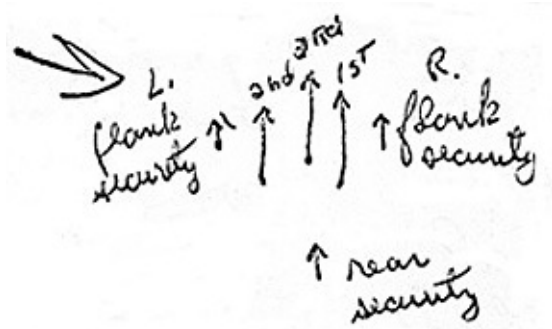 L.
flank
security
2nd
3rd
1ST
R.
flank
security
rear
security